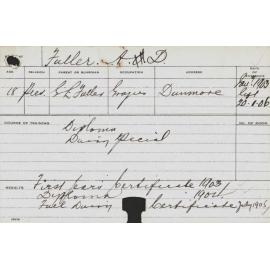 Fuller. A. H. D.
AGE RELIGION PARENT OR GUARDIAN OCCUPATION ADDRESS DATE OF
18 Pres. G L Fuller Grazier Dunmore Jan. 1903
left 20-1-06
COURSE OF TRAINING
Diploma
Dairy Special
RESULTS
First Year Certificate 1903
Diploma 1904
Full Dairy Certificate July 1905